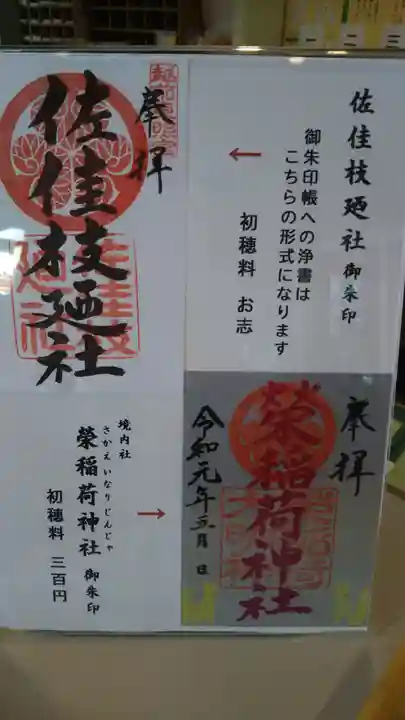 佐佳枝廼社 御朱印
御朱印帳への浄書は
こちらの形式になります
初穂料 お志
←
奉拝
佐佳枝廼社
奉拝
榮稲荷神社
令和元年五月 日
境内社
さかえいなりじんじゃ
榮稲荷神社 御朱印
初穂料 三百円
→